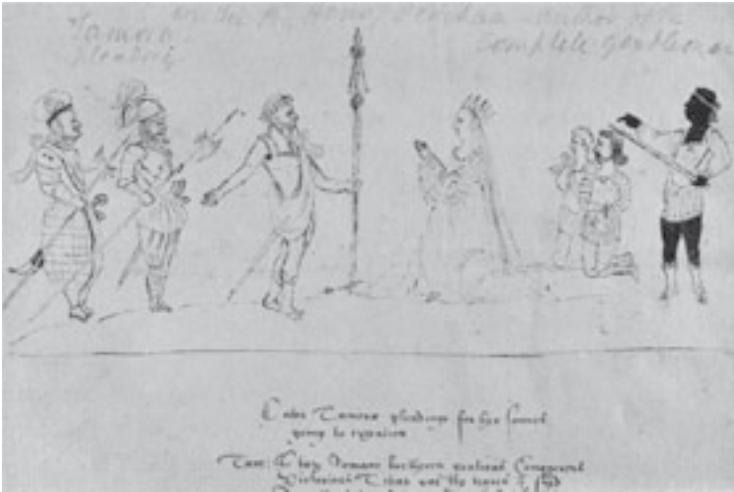 Henry Peacham - author of the
Tamora
pleading
Complete gentleman
Enter Tamora pleadinge for her sonnes
going to execution
Tam: Stay Romane bretheren gratious Conquerors
Victorious Titus rue the teares I shed